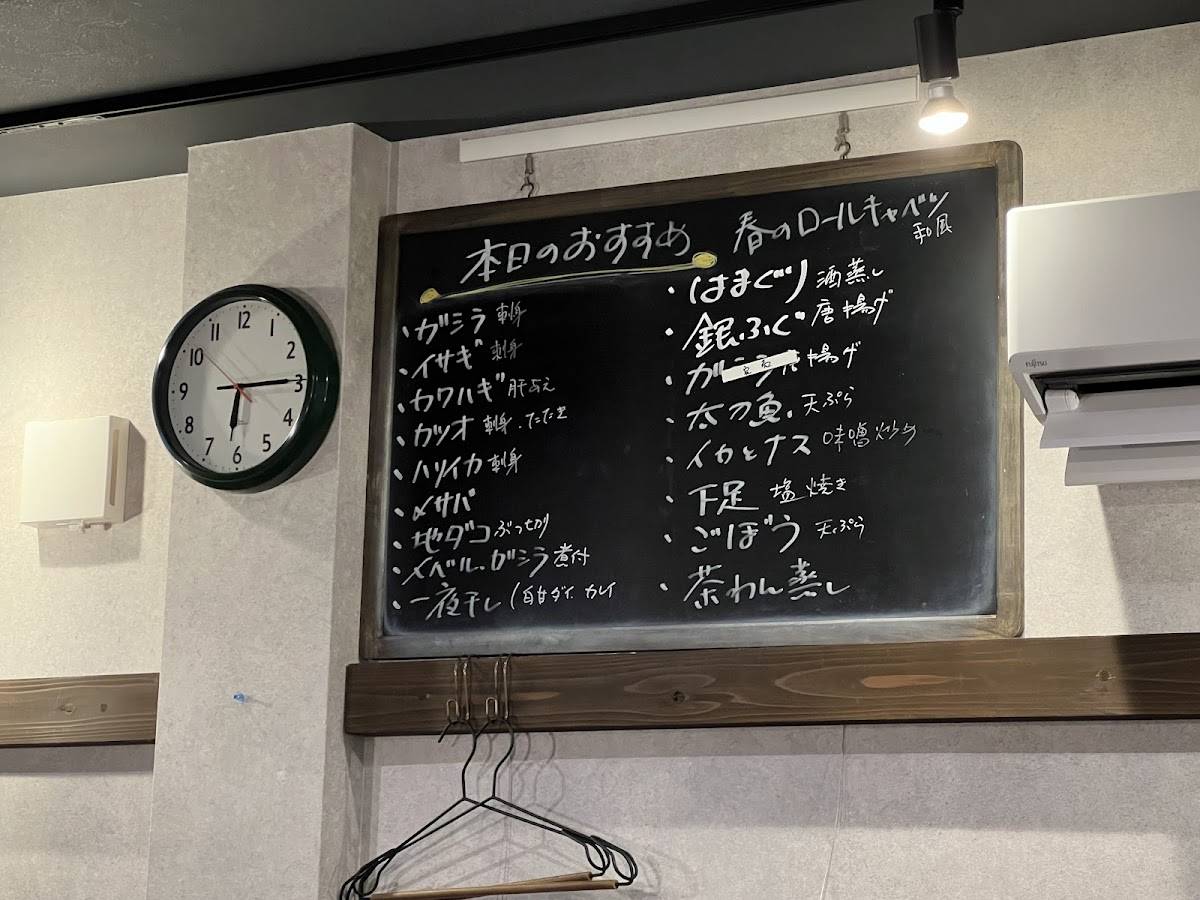 本日のおすすめ
・ガシラ 刺身
・イサギ 刺身
・カワハギ 肝あえ
・カツオ 刺身・たたき
・ハツイカ 刺身
・〆サバ
・地ダコ ぶつ切り
・メバル・ガシラ 煮付
・一夜干し (白甘ダイ カレイ
春のロールキャベツ
和風
・はまぐり 酒蒸し
・銀ふぐ 唐揚げ
・ガシラ 揚げ
・太刀魚 天ぷら
・イカとナス 味噌炒め
・下足 塩焼き
・ごぼう 天ぷら
・茶わん蒸し
12
1
2
3
4
5
6
7
8
9
10
11
FUJITSU